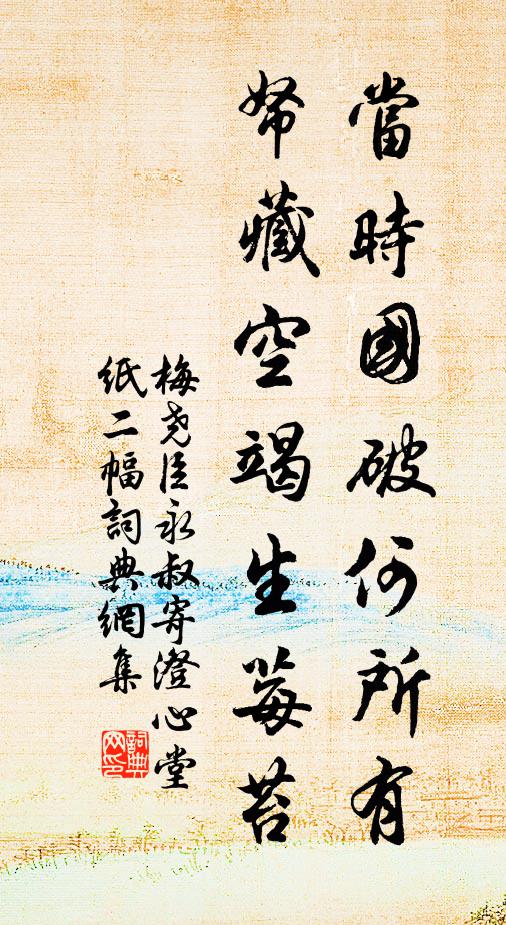 當時國破何所有
帑藏空竭生莓苔
梅堯臣永叔寄澄心堂
紙二幅詞典網集
詞典
网印